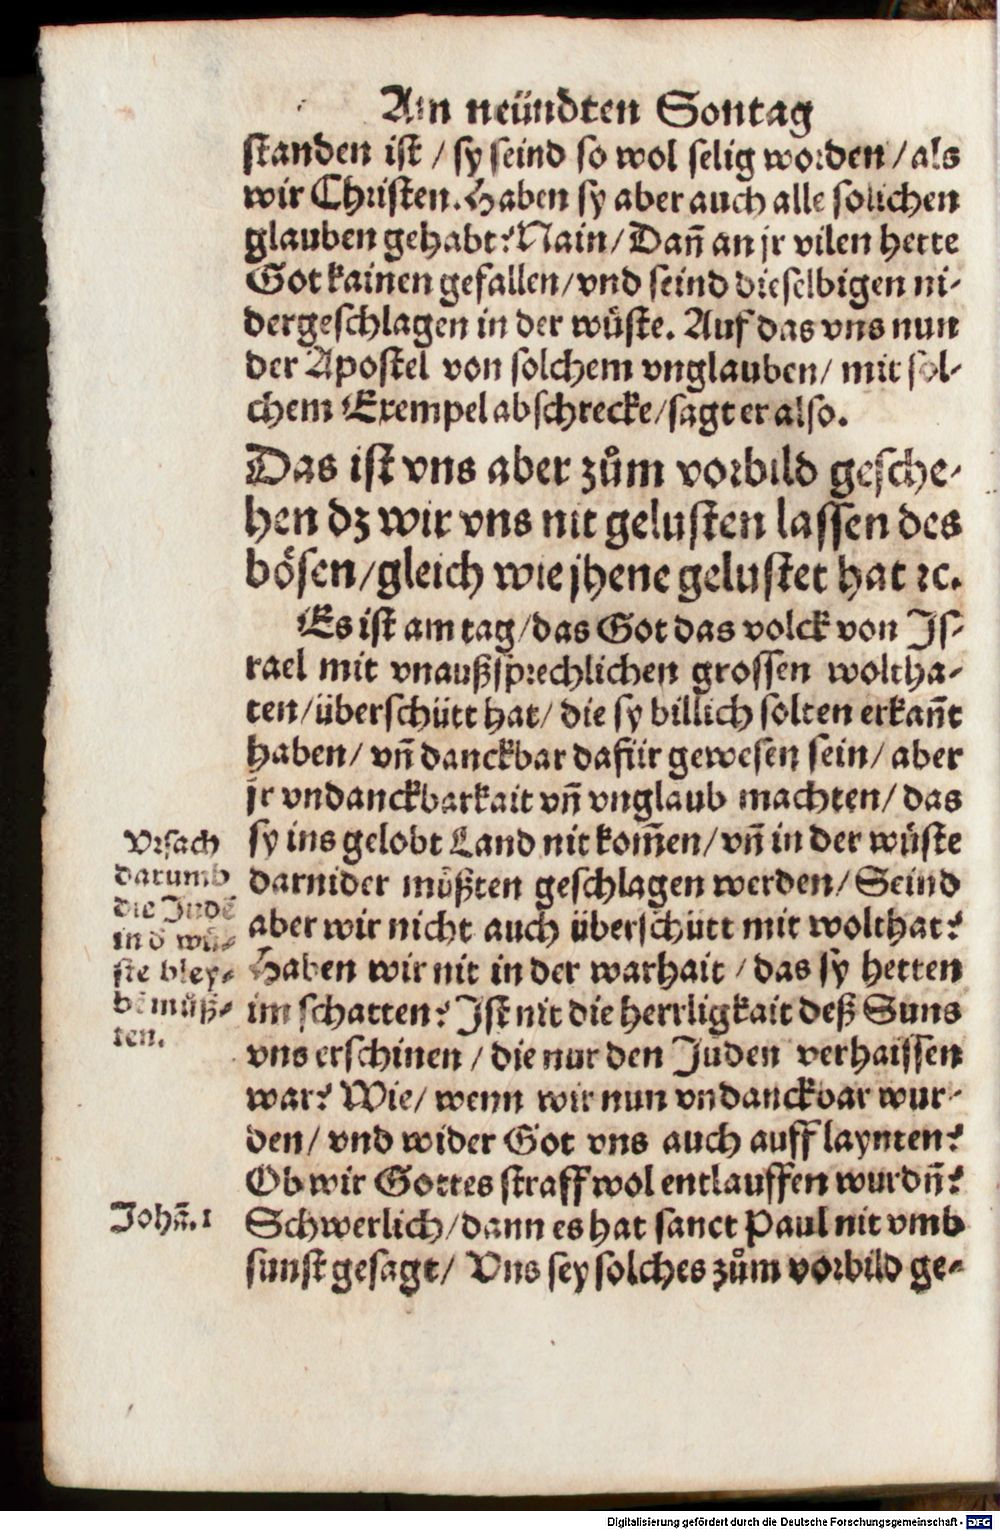 Am neündten Sontag
standen ist / sy seind so wol selig worden / als
wir Christen. Haben sy aber auch alle solichen
glauben gehabt? Nain / Dañ an jr vilen hette
Got kainen gefallen / vnd seind dieselbigen ni-
dergeschlagen in der wüste. Auf das vns nun
der Apostel von solchem vnglauben / mit sol-
chem Exempel abschrecke / sagt er also.
Das ist vns aber zům vorbild gesche-
hen dz wir vns nit gelusten lassen des
bösen / gleich wie jhene gelustet hat ꝛc.
Es ist am tag / das Got das volck von Is-
rael mit vnaußsprechlichen grossen woltha-
ten / überschütt hat / die sy billich solten erkañt
haben / vñ danckbar dafür gewesen sein / aber
jr vndanckbarkait vñ vnglaub machten / das
sy ins gelobt Land nit kom̃en / vñ in der wüste
darnider müßten geschlagen werden / Seind
aber wir nicht auch überschütt mit wolthat?
Haben wir nit in der warhait / das sy hetten
im schatten? Ist nit die herrligkait deß Suns
vns erschinen / die nur den Juden verhaissen
war? Wie / wenn wir nun vndanckbar wur-
den / vnd wider Got vns auch auff laynten?
Ob wir Gottes straff wol entlauffen wurdñ?
Schwerlich / dann es hat sanct Paul nit vmb
sunst gesagt / Vns sey solches zům vorbild ge-
Vrsach
darumb
die Judẽ
in d wü-
ste bley-
bẽ müß-
ten.
Johã. 1
Digitalisierung gefördert durch die Deutsche Forschungsgemeinschaft - DFG